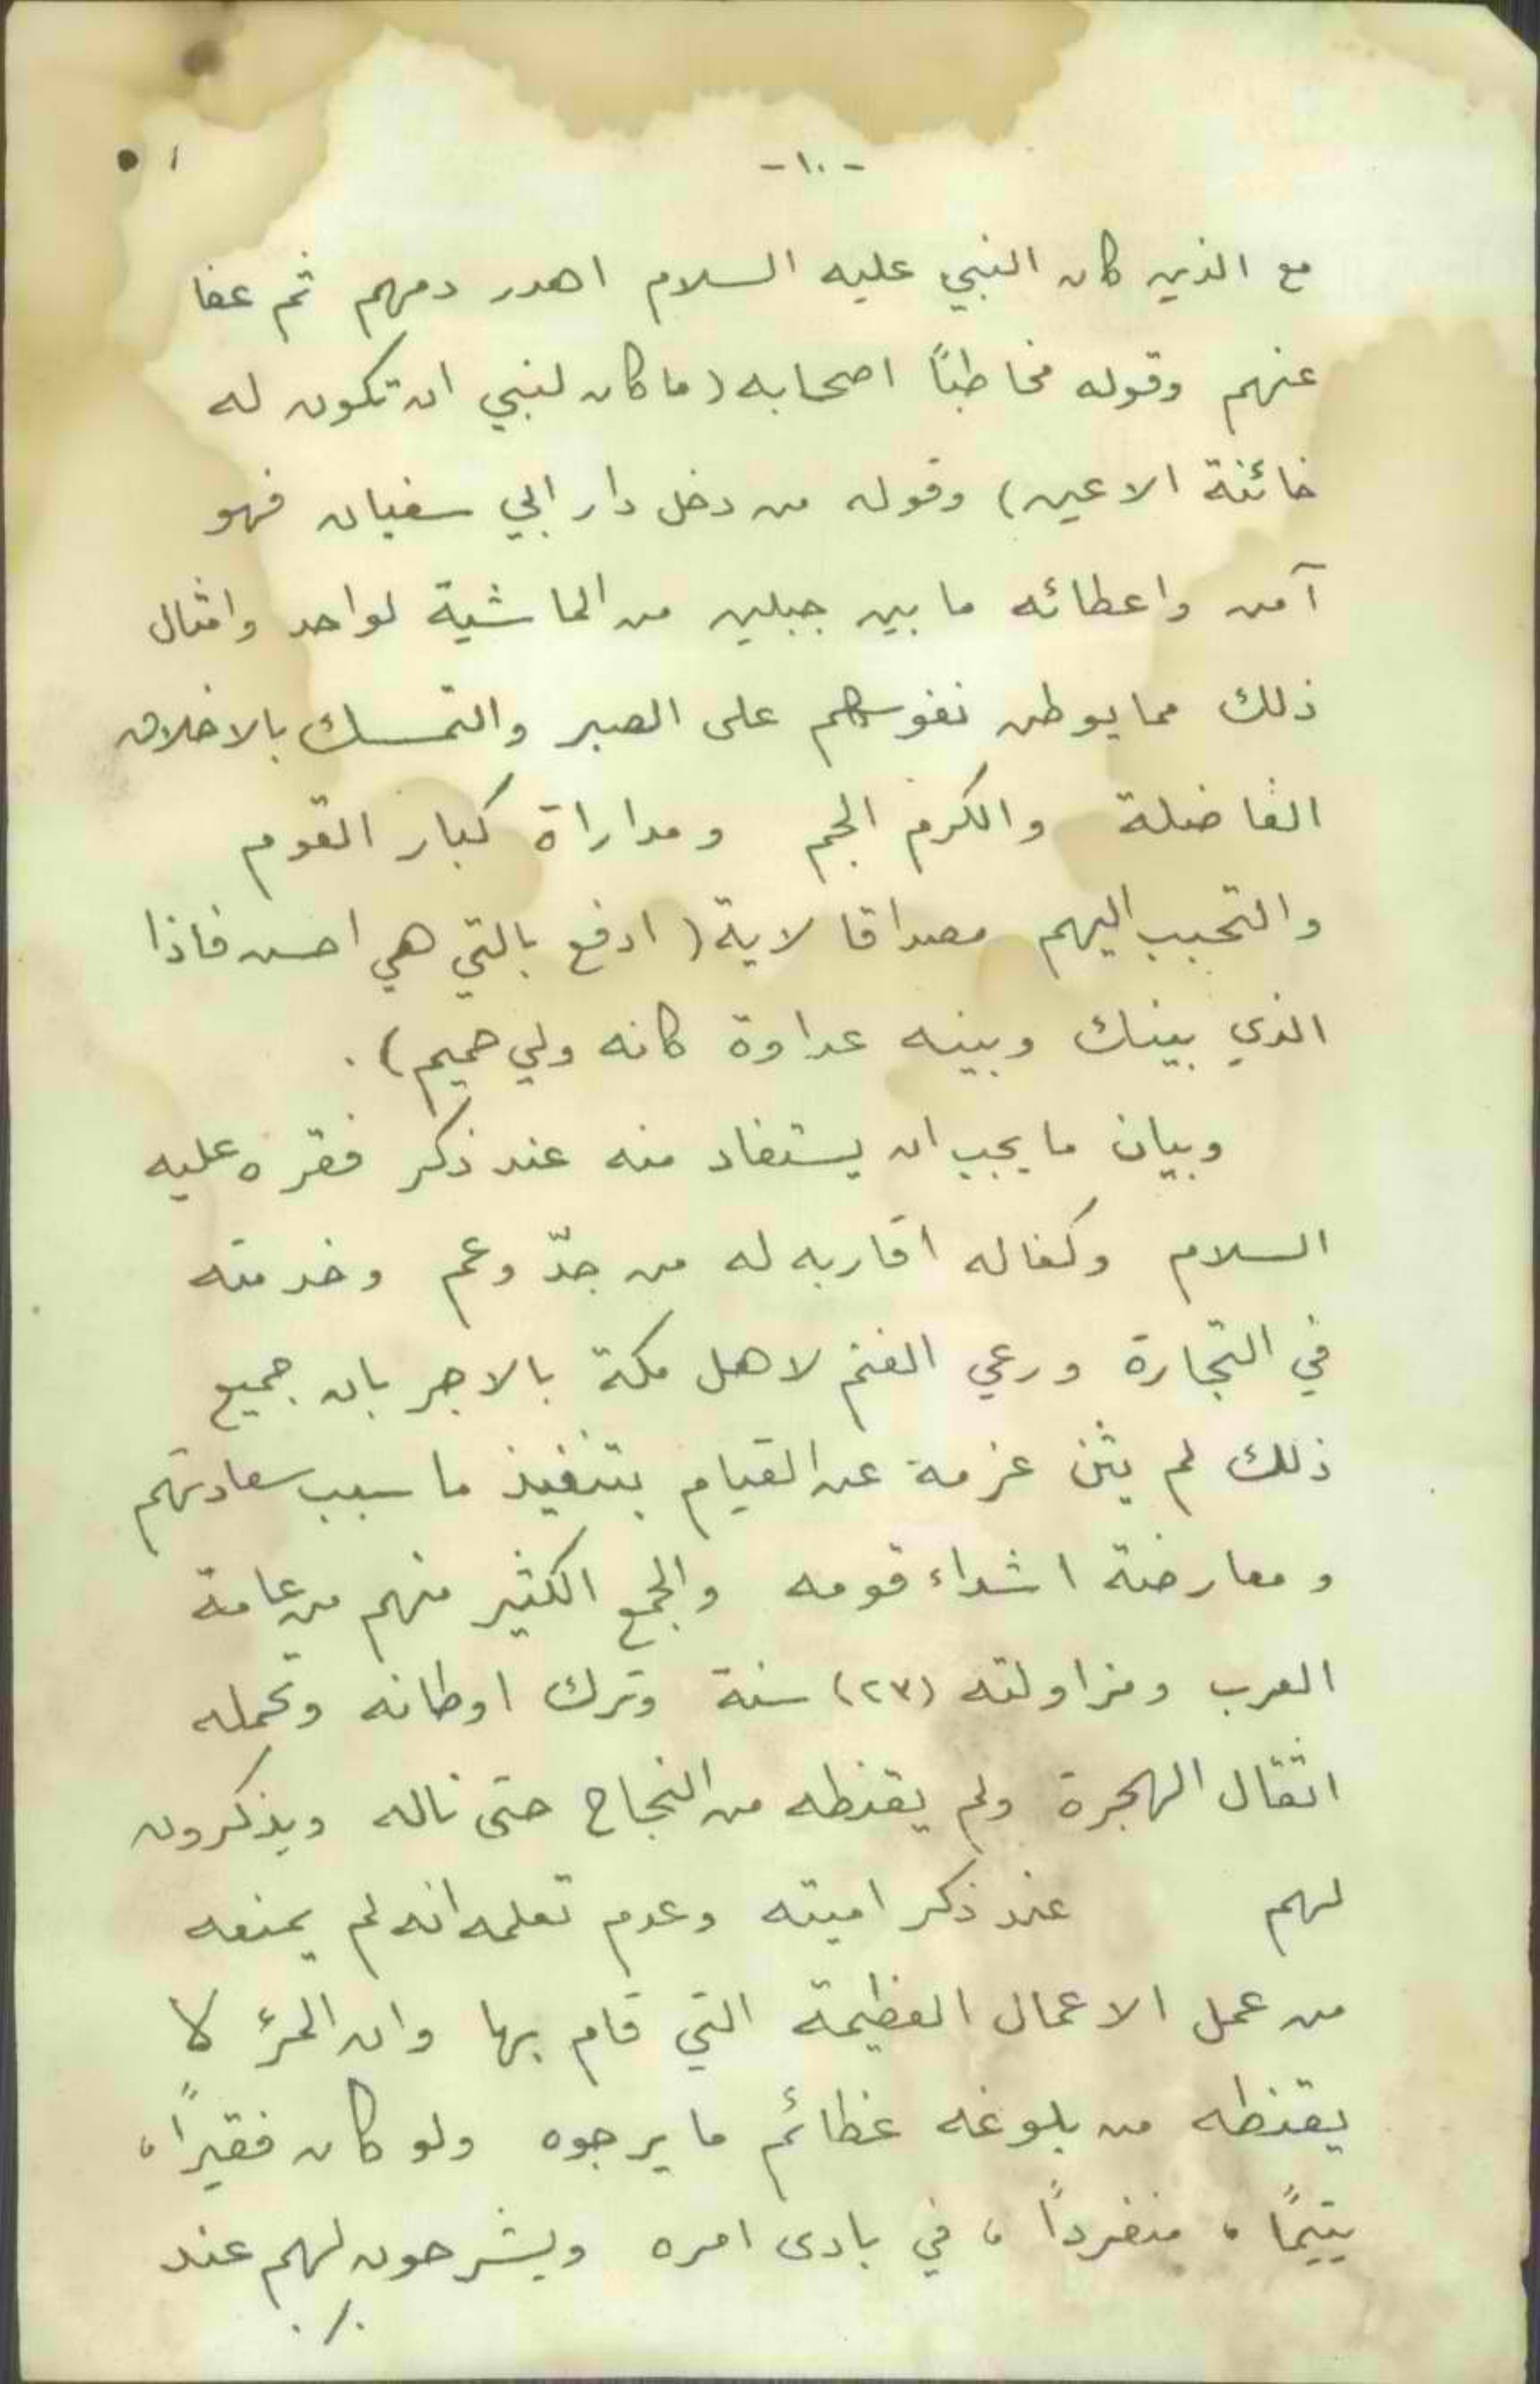 -١٠-
مع الذين كان النبي عليه السلام اهدر دمهم ثم عفا
عنهم وقوله مخاطبًا اصحابه (ما كان لنبي ان تكون له
خائنة الاعين) وقوله من دخل دار ابي سفيان فهو
آمن واعطائه ما بين جبلين من الماشية لواحد وامثال
ذلك مما يوطن نفوسهم على الصبر والتمسك بالاخلاق
الفاضلة والكرم الجم ومداراة كبار القوم
والتحبب اليهم مصداقا لاية (ادفع بالتي هي احسن فاذا
الذي بينك وبينه عداوة كانه ولي حميم).
وبيان ما يجب ان يستفاد منه عند ذكر فقره عليه
السلام وكفاله اقاربه له من جدّ وعم وخدمته
في التجارة ورعي الغنم لاهل مكة بالاجر بان جميع
ذلك لم يثن عزمة عن القيام بتنفيذ ما سبب سعادتهم
ومعارضة اشداء قومه والجمع الكثير منهم من عامة
العرب ومزاولته (٢٣) سنة وترك اوطانه وتحمله
اثقال الهجرة ولم يقنطه من النجاح حتى ناله ويذكرون
لهم عند ذكر اميته وعدم تعلمه انه لم يمنعه
من عمل الاعمال العظيمة التي قام بها وان المرء لا
يقنطه من بلوغه عظائم ما يرجوه ولو كان فقيراً،
يتيمًا، منفرداً، في بادى امره ويشرحون لهم عند
./.